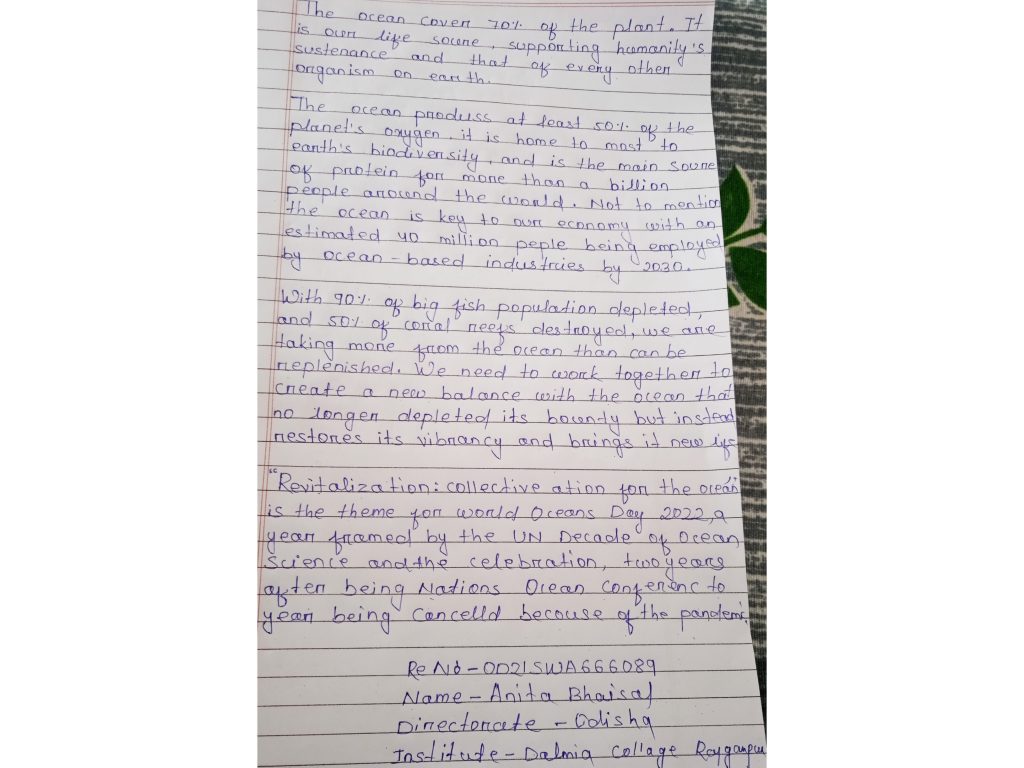 The ocean coverr 70% of the plant. It
is our life sourne, supporting humanity's
sustenance and that of every other
organism on earth.
The ocean produss at least 50% of the
planet's oxygen, it is home to most to
earth's biodiversity, and is the main sourne
of protein for more than a billion
people around the world. Not to mention
the ocean is key to our economy with an
estimated 40 million peple being employed
by ocean-based industries by 2030.
With 90% of big fish population depleted,
and 50% of corral reefs destroyed, we are
taking more from the ocean than can be
replenished. We need to work together to
create a new balance with the ocean that
no longer depleted its bounty but instead
restores its vibrancy and brings it new life
"Revitalization: collective ation for the ocean
is the theme for world Oceans Day 2022, a
year framed by the UN Decade of Ocean
Science and the celebration, two years
after being Nations Ocean Conferenc to
year being Cancelld becouse of the pandemi
Re No - OD21SWA666089
Name - Anita Bhaisal
Directorate - Odisha
Institute - Dalmia Collage